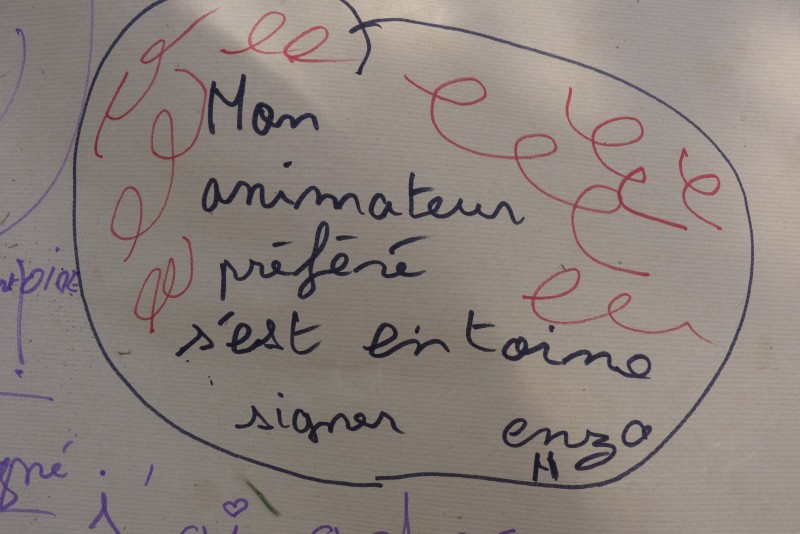 Mon
animateur
préféré
s'est entoine
signer enzo
H
gné.